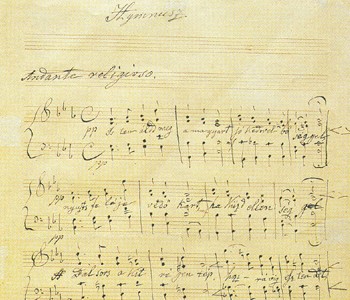 Hymnusz.
Andante religioso.
pp Is ten áldd meg a magyart jó kedvvel bő séggel
pp
nyújts fe léje védő kart, ha küzd ellen ség gel
pp
Bal sors a kit ré gen tép,